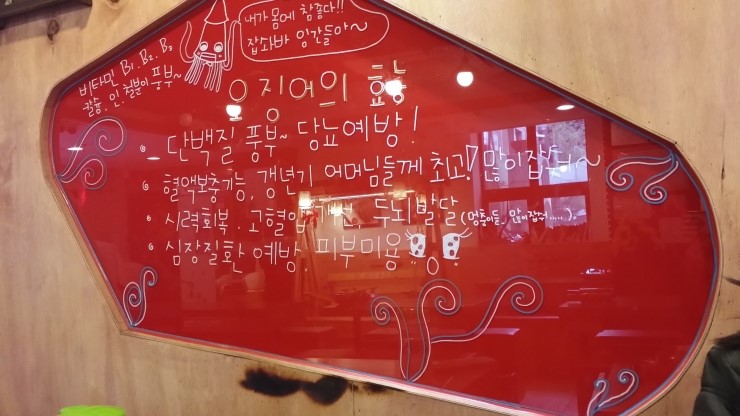 내가 몸에 참좋다!!
잡솨봐 잉간들아~
비타민 B₁. B₂. B₃
칼슘. 인. 철분이 풍부~
오징어의 효능
단백질 풍부~ 당뇨예방!
혈액보충기능, 갱년기 어머님들께 최고! 많이잡숴~
시력회복. 고혈압 두뇌발달 (멍충이들, 많이잡숴.....).
심장질환 예방. 피부미용